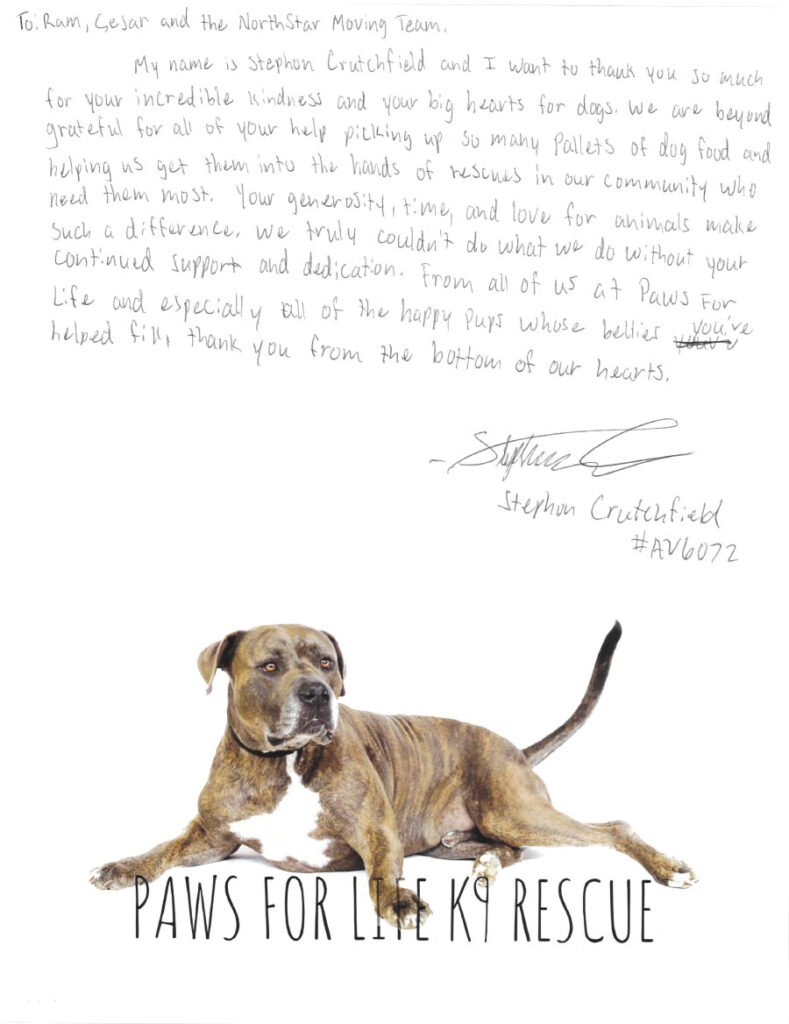 To: Ram, Cesar and the NorthStar Moving Team,
My name is Stephon Crutchfield and I want to thank you so much
for your incredible kindness and your big hearts for dogs. We are beyond
grateful for all of your help picking up so many Pallets of dog food and
helping us get them into the hands of rescues in our community who
need them most. Your generosity, time, and love for animals make
such a difference. We truly couldn't do what we do without your
continued support and dedication. From all of us at Paws For
Life and especially all of the happy Pups whose bellies you've
helped fill, thank you from the bottom of our hearts.
Stephon Crutchfield
#AV6072
PAWS FOR LIFE K9 RESCUE